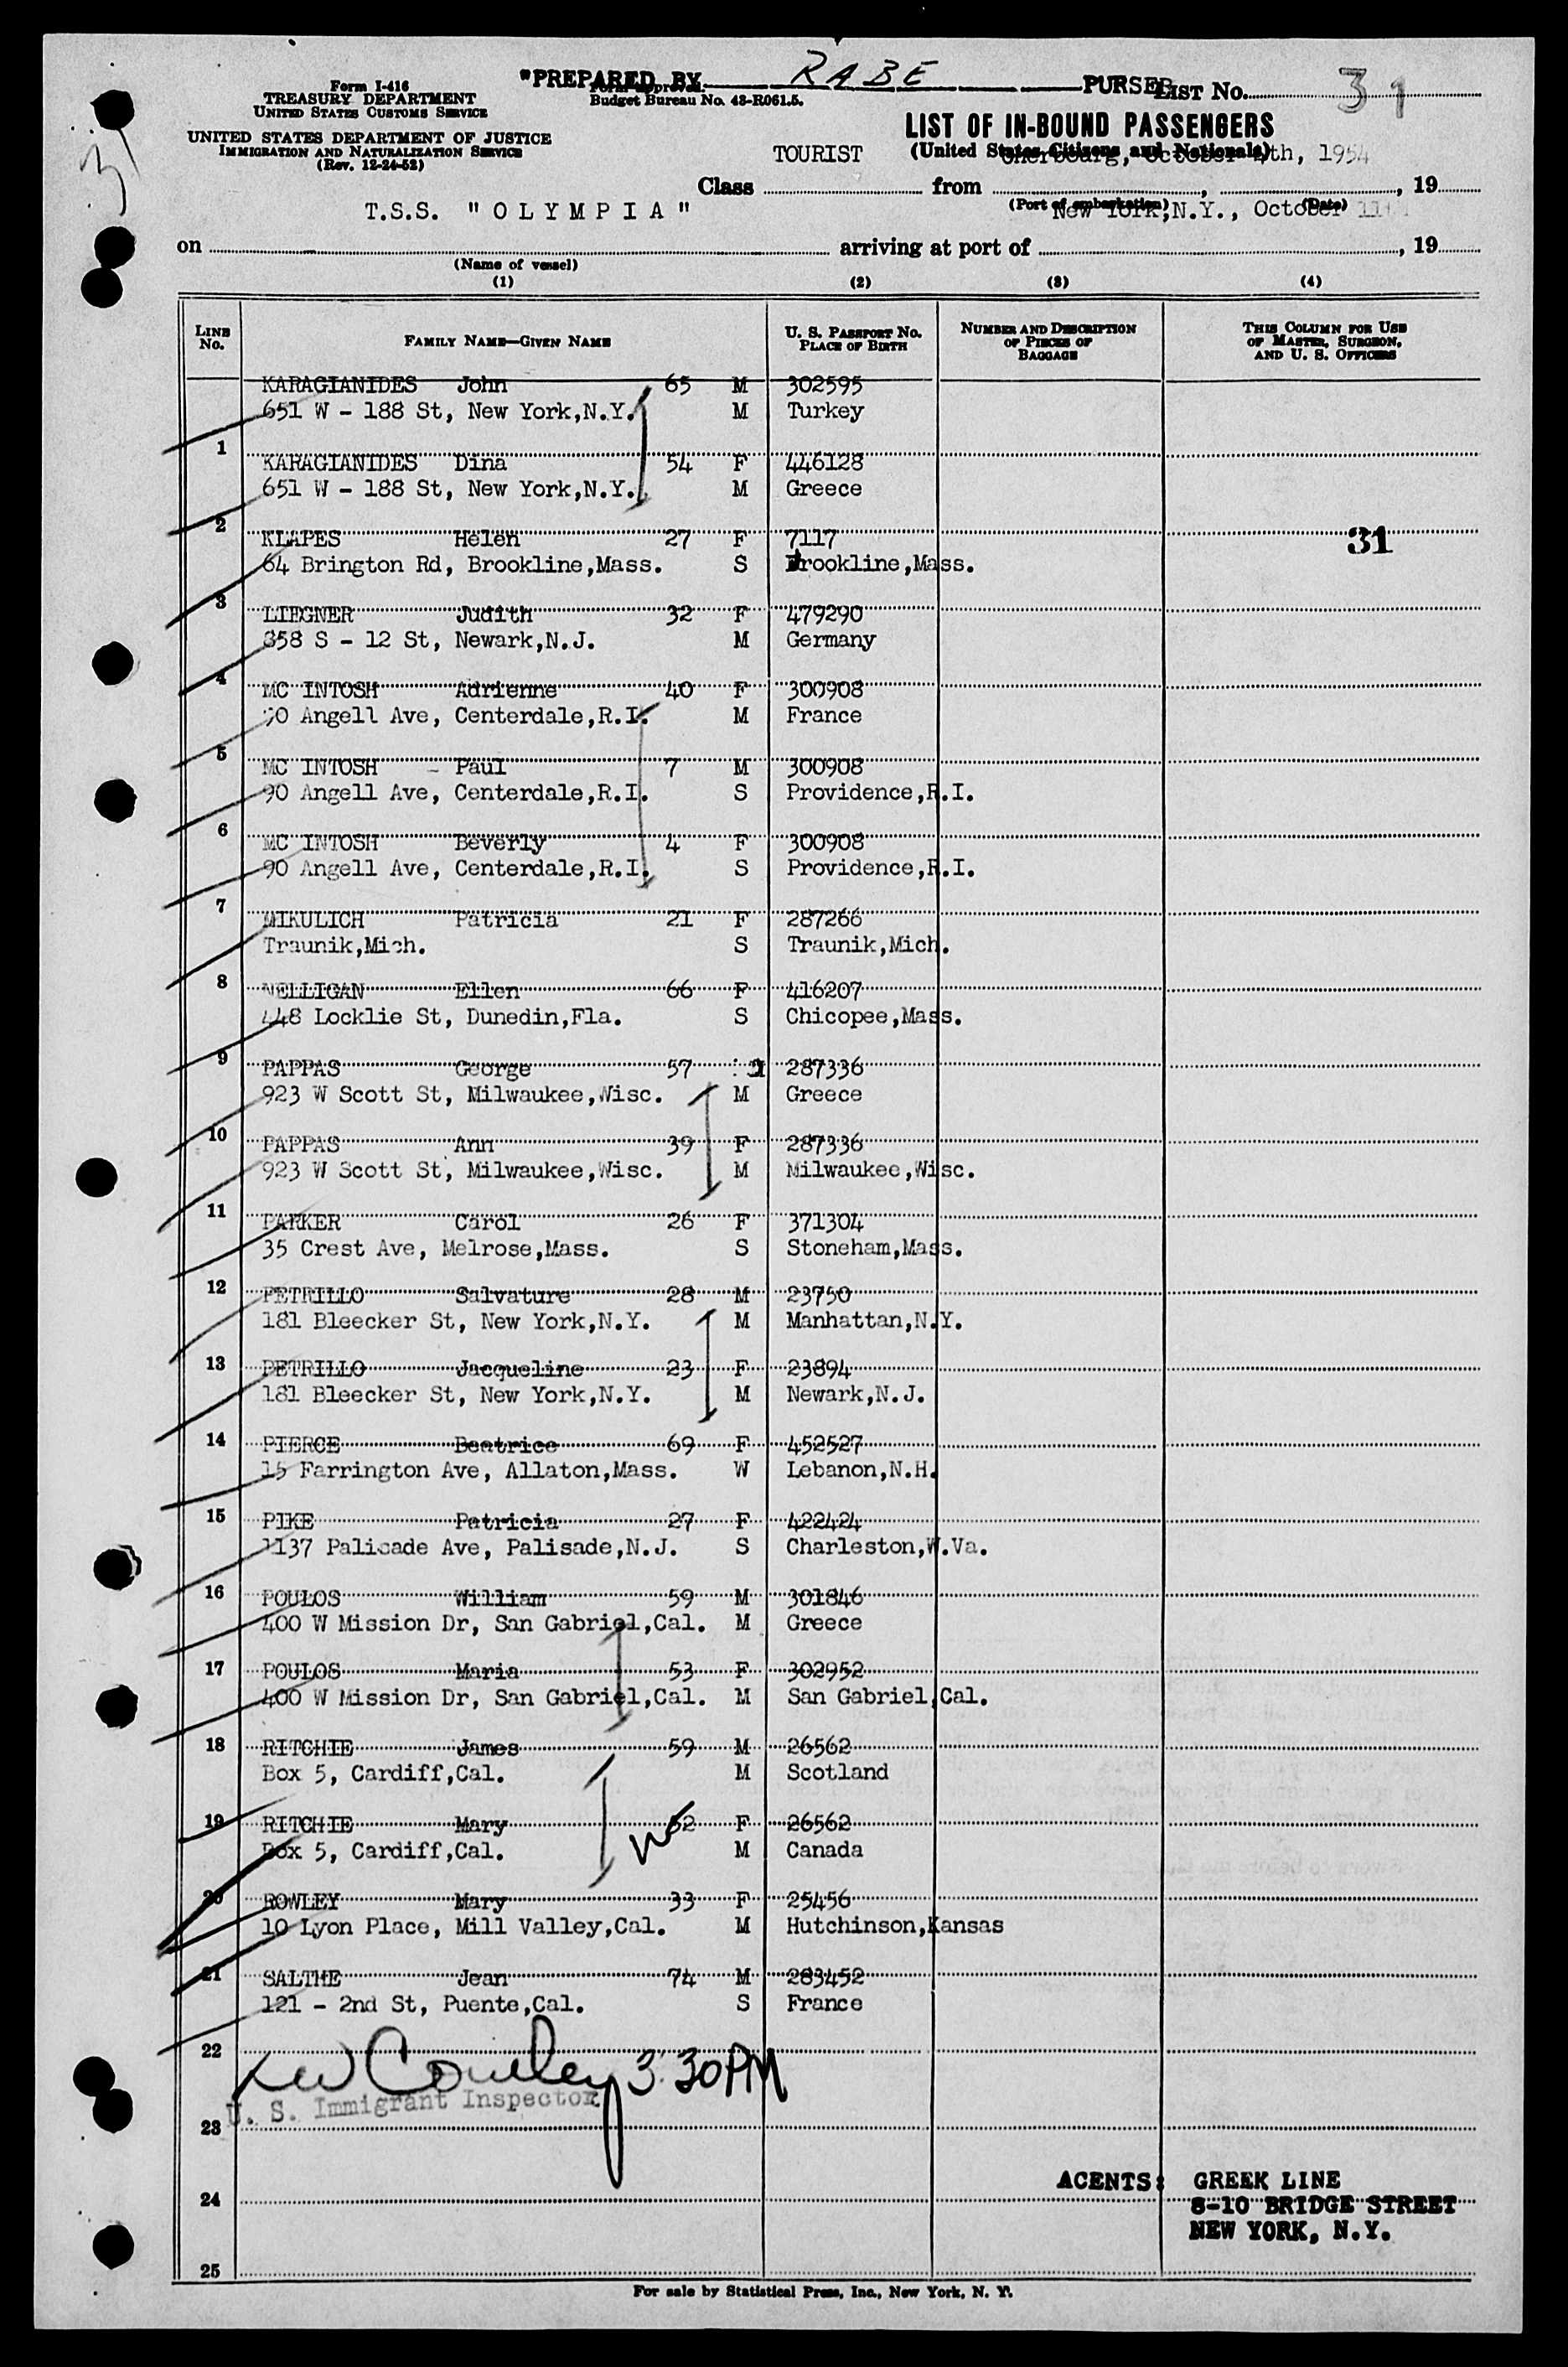 "PREPARED BY RABE PURSER
Form I-416
TREASURY DEPARTMENT
UNITED STATES CUSTOMS SERVICE
UNITED STATES DEPARTMENT OF JUSTICE
IMMIGRATION AND NATURALIZATION SERVICE
(Rev. 12-24-52)
Form approved.
Budget Bureau No. 43-R061.5.
LIST No. 31
3
LIST OF IN-BOUND PASSENGERS
(United States Citizens and Nationals)
TOURIST Cherbourg, October 4th, 1954
Class from , , 19
(Port of embarkation) (Date)
T.S.S. "OLYMPIA" New York,N.Y., October 11
on arriving at port of , 19
(Name of vessel)
(1) (2) (3) (4)
LINE No. FAMILY NAME—GIVEN NAME U. S. PASSPORT No. PLACE OF BIRTH NUMBER AND DESCRIPTION OF PIECES OF BAGGAGE THIS COLUMN FOR USE OF MASTER, SURGEON, AND U. S. OFFICERS
KARAGIANIDES John 65 M 302595
651 W - 188 St, New York,N.Y. M Turkey
1
KARAGIANIDES Dina 54 F 446128
651 W - 188 St, New York,N.Y. M Greece
2
KLAPES Helen 27 F 7117 31
64 Brington Rd, Brookline,Mass. S Brookline,Mass.
3
LIEGNER Judith 32 F 479290
858 S - 12 St, Newark,N.J. M Germany
4
MC INTOSH Adrienne 40 F 300908
90 Angell Ave, Centerdale,R.I. M France
5
MC INTOSH - Paul 7 M 300908
90 Angell Ave, Centerdale,R.I. S Providence,R.I.
6
MC INTOSH Beverly 4 F 300908
90 Angell Ave, Centerdale,R.I. S Providence,R.I.
7
MIKULICH Patricia 21 F 287266
Traunik,Mich. S Traunik,Mich.
8
NELLIGAN Ellen 66 F 416207
448 Locklie St, Dunedin,Fla. S Chicopee,Mass.
9
PAPPAS George 57 287336
923 W Scott St, Milwaukee,Wisc. M Greece
10
PAPPAS Ann 39 F 287336
923 W Scott St, Milwaukee,Wisc. M Milwaukee,Wisc.
11
PARKER Carol 26 F 371304
35 Crest Ave, Melrose,Mass. S Stoneham,Mass.
12
PETRILLO Salvature 28 M 23750
181 Bleecker St, New York,N.Y. M Manhattan,N.Y.
13
PETRILLO Jacqueline 23 F 23894
181 Bleecker St, New York,N.Y. M Newark,N.J.
14
PIERCE Beatrice 69 F 452527
15 Farrington Ave, Allaton,Mass. W Lebanon,N.H.
15
PIKE Patricia 27 F 422424
1137 Palicade Ave, Palisade,N.J. S Charleston,W.Va.
16
POULOS William 59 M 301846
400 W Mission Dr, San Gabriel,Cal. M Greece
17
POULOS Maria 53 F 302952
400 W Mission Dr, San Gabriel,Cal. M San Gabriel,Cal.
18
RITCHIE James 59 M 26562
Box 5, Cardiff,Cal. M Scotland
19
RITCHIE Mary 52 F 26562
Box 5, Cardiff,Cal. M Canada
20
ROWLEY Mary 33 F 25456
10 Lyon Place, Mill Valley,Cal. M Hutchinson,Kansas
21
SALTHE Jean 74 M 283452
121 - 2nd St, Puente,Cal. S France
22
3:30PM
U. S. Immigrant Inspector
23
AGENTS: GREEK LINE
24
8-10 BRIDGE STREET
NEW YORK, N.Y.
25
For sale by Statistical Press, Inc., New York, N. Y.